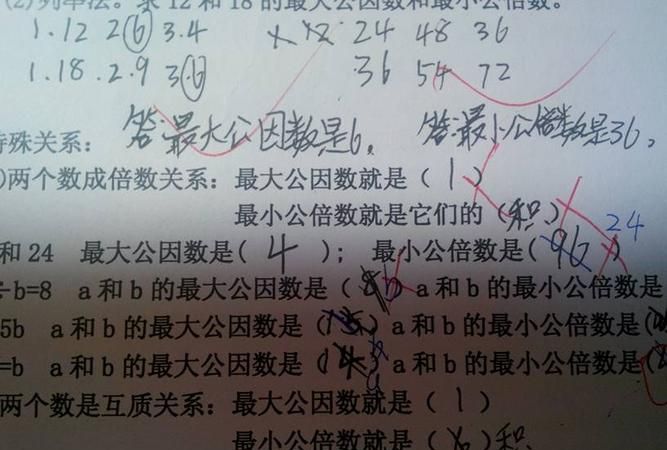 (2)列举法。求12和18的最大公因数和最小公倍数。
1.12 2 6 3.4 24 48 36
1.18.2.9 3 6 36 54 72
特殊关系： 答:最大公因数是6。 答:最小公倍数是36。
)两个数成倍数关系：最大公因数就是（ 1 ）
最小公倍数就是它们的（积）
和24 最大公因数是( 4 ); 最小公倍数是( 96 ) 24
÷b=8 a和b的最大公因数是（ b a和b的最小公倍数是
5b a和b的最大公因数是（ ）a和b的最小公倍数是(
=b a和b的最大公因数是（ ）a和b的最小公倍数是(
两个数是互质关系：最大公因数就是（ 1 ）
最小公倍数就是（ ）积